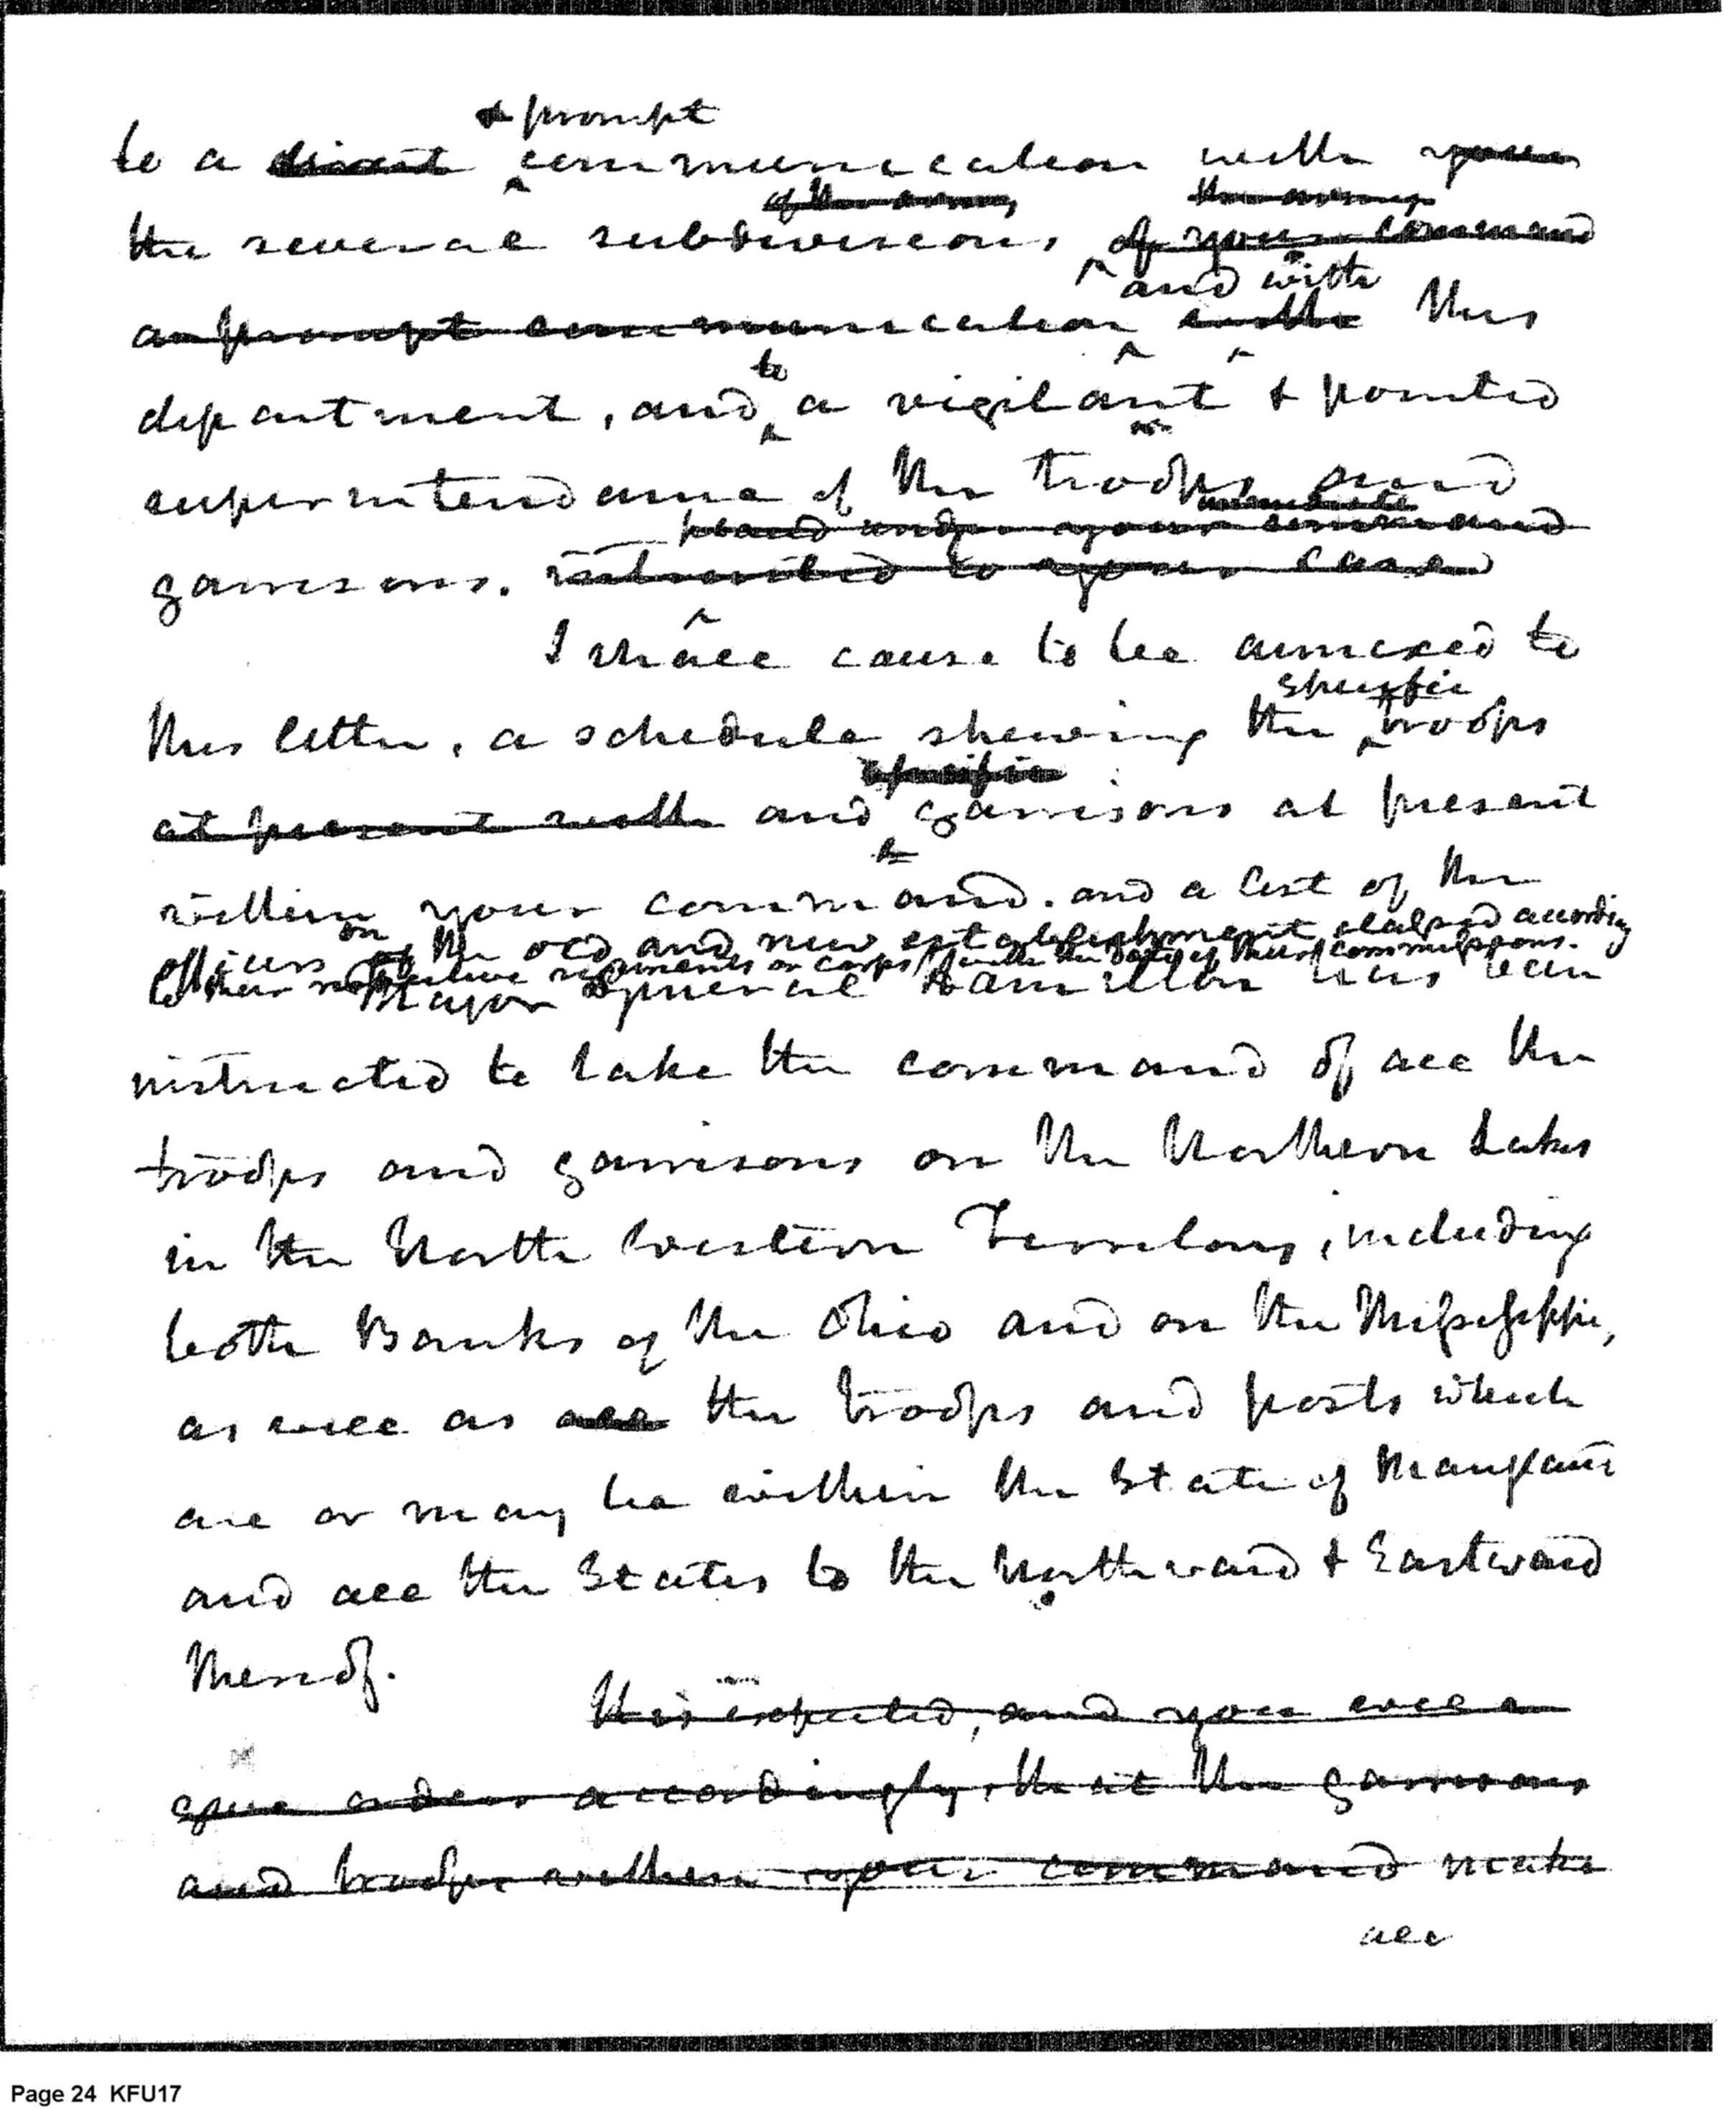 & prompt
to a direct communication with your
of the army the army
the several subdivisions, of your command
and with
a prompt communication with this
to
department, and a vigilant & pointed
superintendance of the troops and
immediate
placed under your command
garrisons. intrusted to your care
I shall cause to be annexed to
specific
this letter, a schedule shewing the troops
specific
at present with and garrisons at present
within your command. and a list of the
on
officers of the old and new establishment classed according
to their respective regiments or corps, with the dates of their commissions.
Major General Hamilton has been
instructed to take the command of all the
troops and garrisons on the Northern Lakes
in the North Western Territory, including
both Banks of the Ohio and on the Missisippi,
as well as all the troops and posts which
are or may be within the State of Maryland
and all the States to the Northward & Eastward
thereof.
It is expected, and you will
give orders accordingly, that the garrisons
and troops within your command make
all
Page 24 KFU17